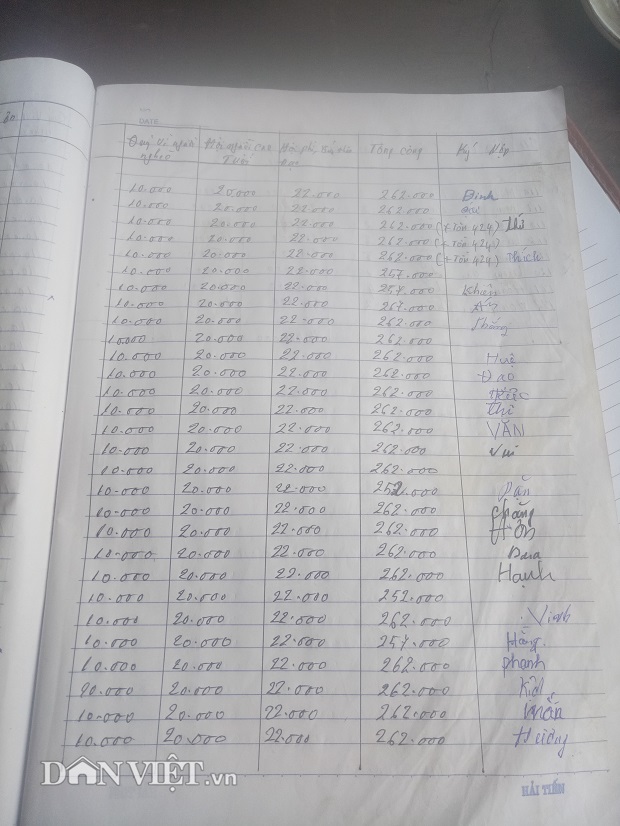 DATE
Quỹ vì người Hội người Cao Hội phí, Tổng cộng Ký Nộp
nghèo Tuổi học
10.000 20.000 22.000 262.000 Bình
10.000 20.000 22.000 262.000
10.000 20.000 22.000 262.000 (+Tồn 424)
10.000 20.000 22.000 262.000 (+Tồn 424)
10.000 20.000 22.000 262.000 (+Tồn 424) Thích
10.000 20.000 22.000 257.000
10.000 20.000 22.000 257.000
10.000 20.000 22.000 267.000
10.000 20.000 22.000 262.000
10.000 20.000 22.000 262.000
10.000 20.000 22.000 262.000 Huệ
10.000 20.000 22.000 262.000 Đạo
10.000 20.000 22.000 262.000
10.000 20.000 22.000 262.000 Thi
10.000 20.000 22.000 262.000 VĂN
10.000 20.000 22.000 262.000 Vui
10.000 20.000 22.000 262.000
10.000 20.000 22.000 252.000
10.000 20.000 22.000 262.000
10.000 20.000 22.000 262.000
10.000 20.000 22.000 262.000
10.000 20.000 22.000 262.000 Hạnh
10.000 20.000 22.000 252.000
10.000 20.000 22.000 262.000 Vinh
10.000 20.000 22.000 257.000 Hằng
10.000 20.000 22.000 262.000 phanh
90.000 20.000 22.000 262.000
10.000 20.000 22.000 262.000
10.000 20.000 22.000 262.000 Hương
DÂN VIỆT.vn
HẢI TIẾN